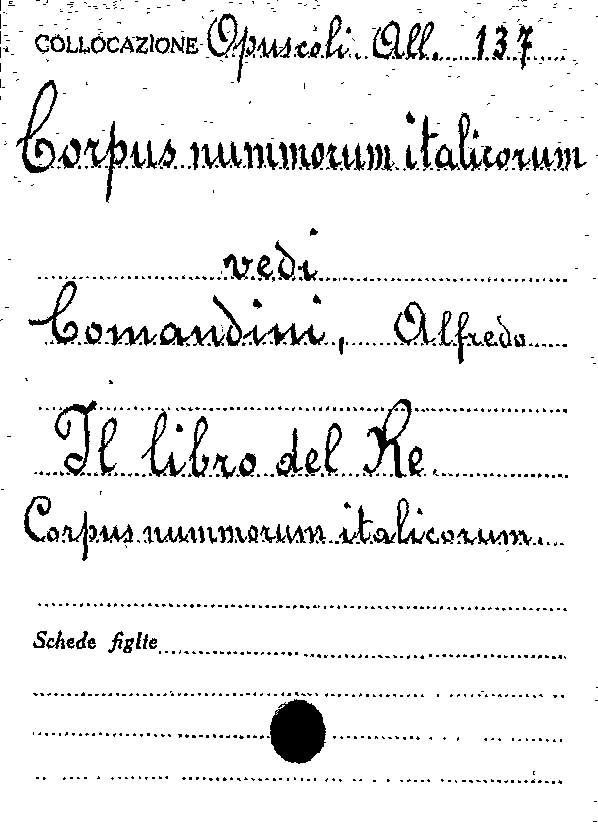 COLLOCAZIONE Opuscoli. All. 137
Corpus nummorum italicorum
vedi
Comandini, Alfredo
Il libro del Re.
Corpus nummorum italicorum.
Schede figlie